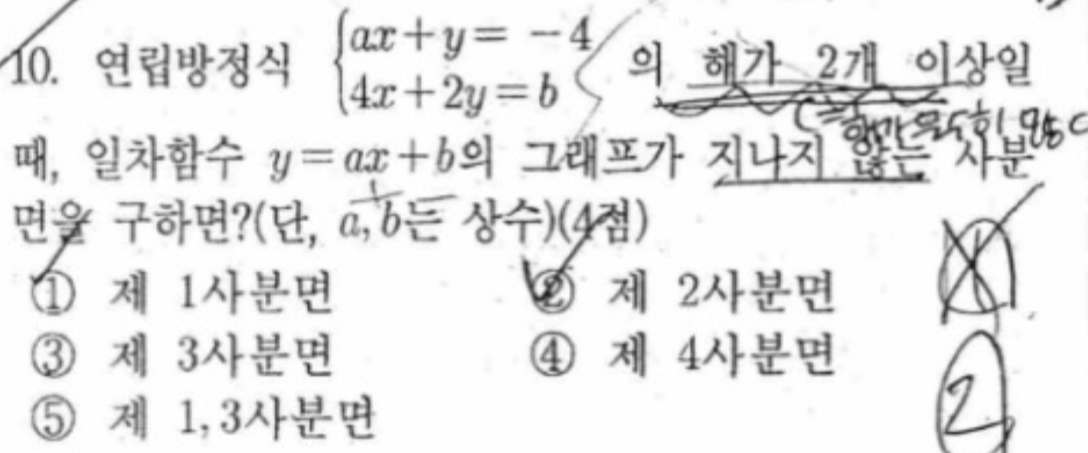 10. 연립방정식 {ax+y= -4 4x+2y=b 의 해가 2개 이상일
때, 일차함수 y=ax+b의 그래프가 지나지 않는 사분
면을 구하면?(단, a, b는 상수)(4점)
① 제 1사분면 ② 제 2사분면
③ 제 3사분면 ④ 제 4사분면
⑤ 제 1, 3사분면
2